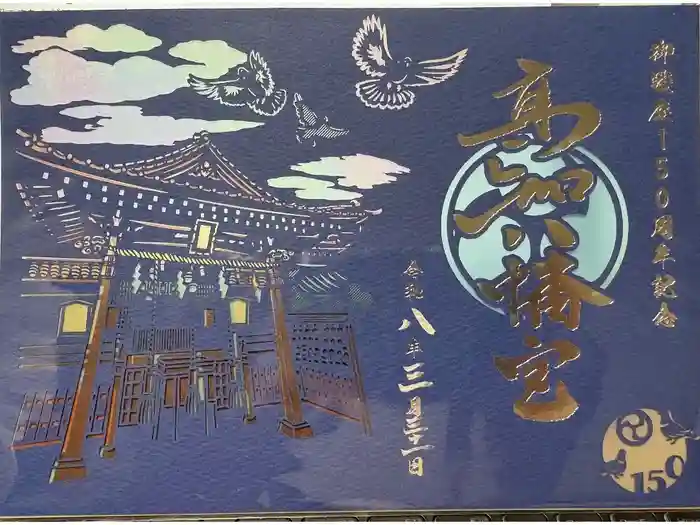 御遷座150周年記念
高知八幡宮
令和八年三月三十一日
150